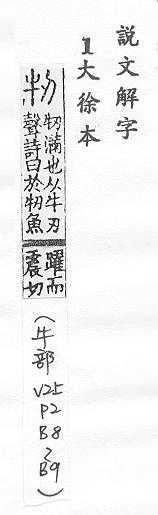 説文解字
1大徐本
牣
牣滿也从牛刃
聲詩曰於牣魚
躍而
震切
(牛部
V25
P2
B8
~
B9)